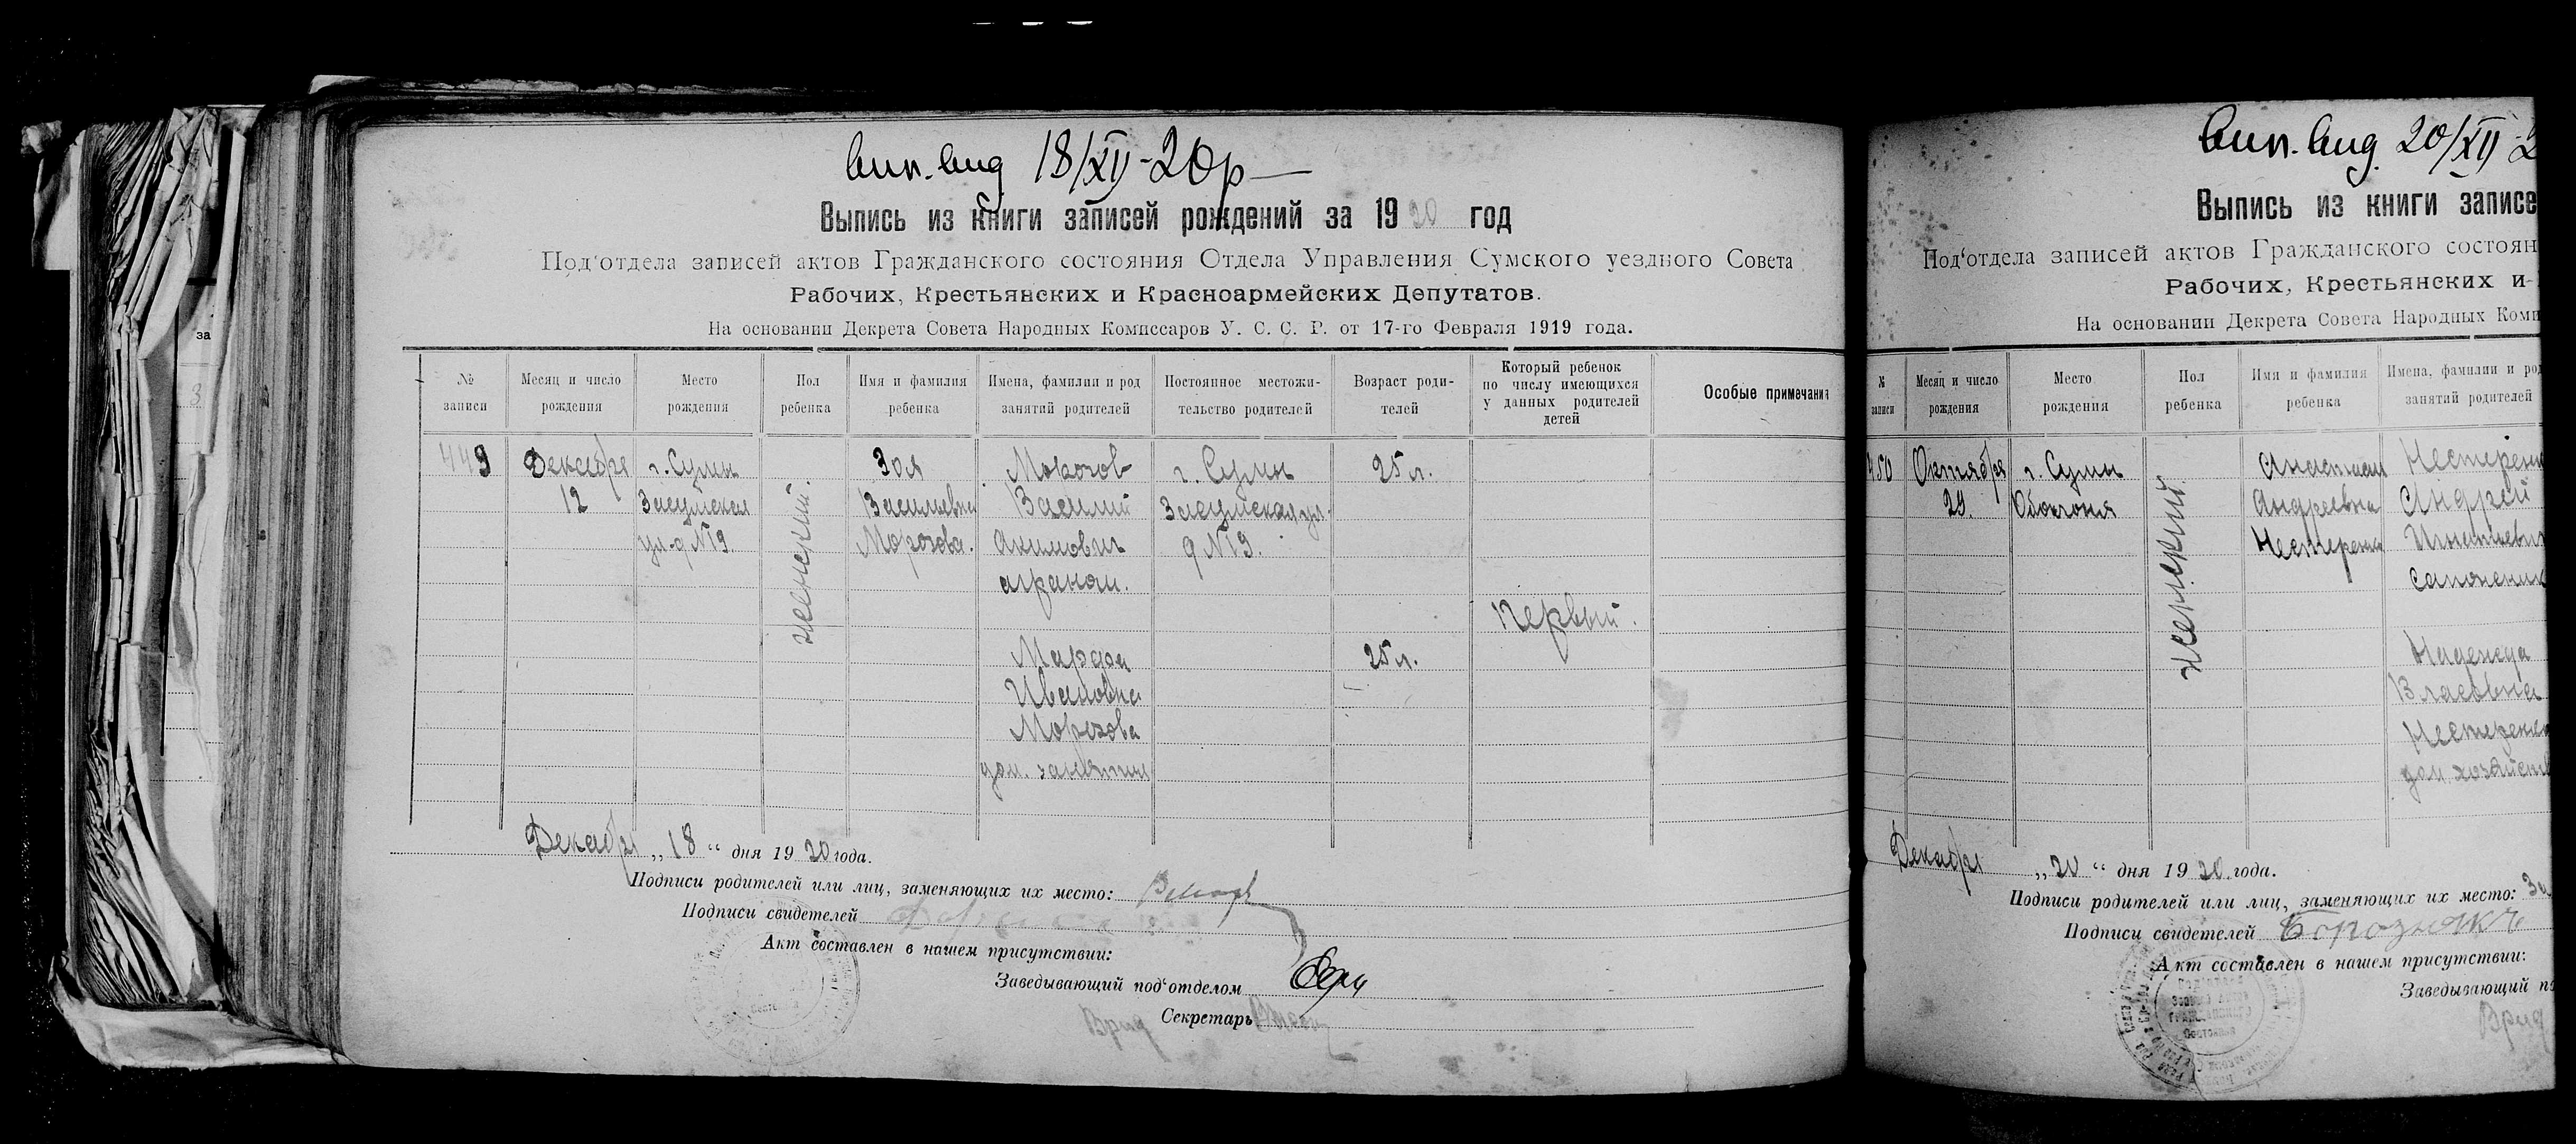 вип. вид 18/XII-20р
Выпись из книги записей рождений за 1920 год
Под'отдела записей актов Гражданского состояния Отдела Управления Сумского уездного Совета
Рабочих, Крестьянских и Красноармейских Депутатов.
На основании Декрета Совета Народных Комиссаров У. С. С. Р. от 17-го Февраля 1919 года.
№ записи
Месяц и число рождения
Место рождения
Пол ребенка
Имя и фамилия ребенка
Имена, фамилии и род занятий родителей
Постоянное местожительство родителей
Возраст родителей
Который ребенок по числу имеющихся у данных родителей детей
Особые примечания
449
Декабря
12
г. Сумы
Засумская
ул. д №19.
женский.
Зоя
Васильевна
Морозова.
Морозов
Василий
Акимович
агроном.
Марфа
Ивановна
Морозова
дом. занятия
г. Сумы
Засумская ул.
д №19.
25 л.
25 л.
Первый.
Декабря „18“ дня 1920 года.
Подписи родителей или лиц, заменяющих их место:
Подписи свидетелей
Акт составлен в нашем присутствии:
Заведывающий под'отделом
Врид Секретарь
вип. вид. 20/XII-2
Выпись из книги записе
Под'отдела записей актов Гражданского состоян
Рабочих, Крестьянских и
На основании Декрета Совета Народных Коми
№ записи
Месяц и число рождения
Место рождения
Пол ребенка
Имя и фамилия ребенка
Имена, фамилии и род занятий родителей
450
Октября
29.
г. Сумы
Оболоня
женский
Анастасия
Андреевна
Нестеренко
Нестеренк
Андрей
Игнатьевич
сапожник
Надежда
Власовна
Нестеренко
дом. хозяйств
Декабря „20“ дня 1920 года.
Подписи родителей или лиц, заменяющих их место: За
Подписи свидетелей
Акт составлен в нашем присутствии:
Заведывающий по
Врид
за
3